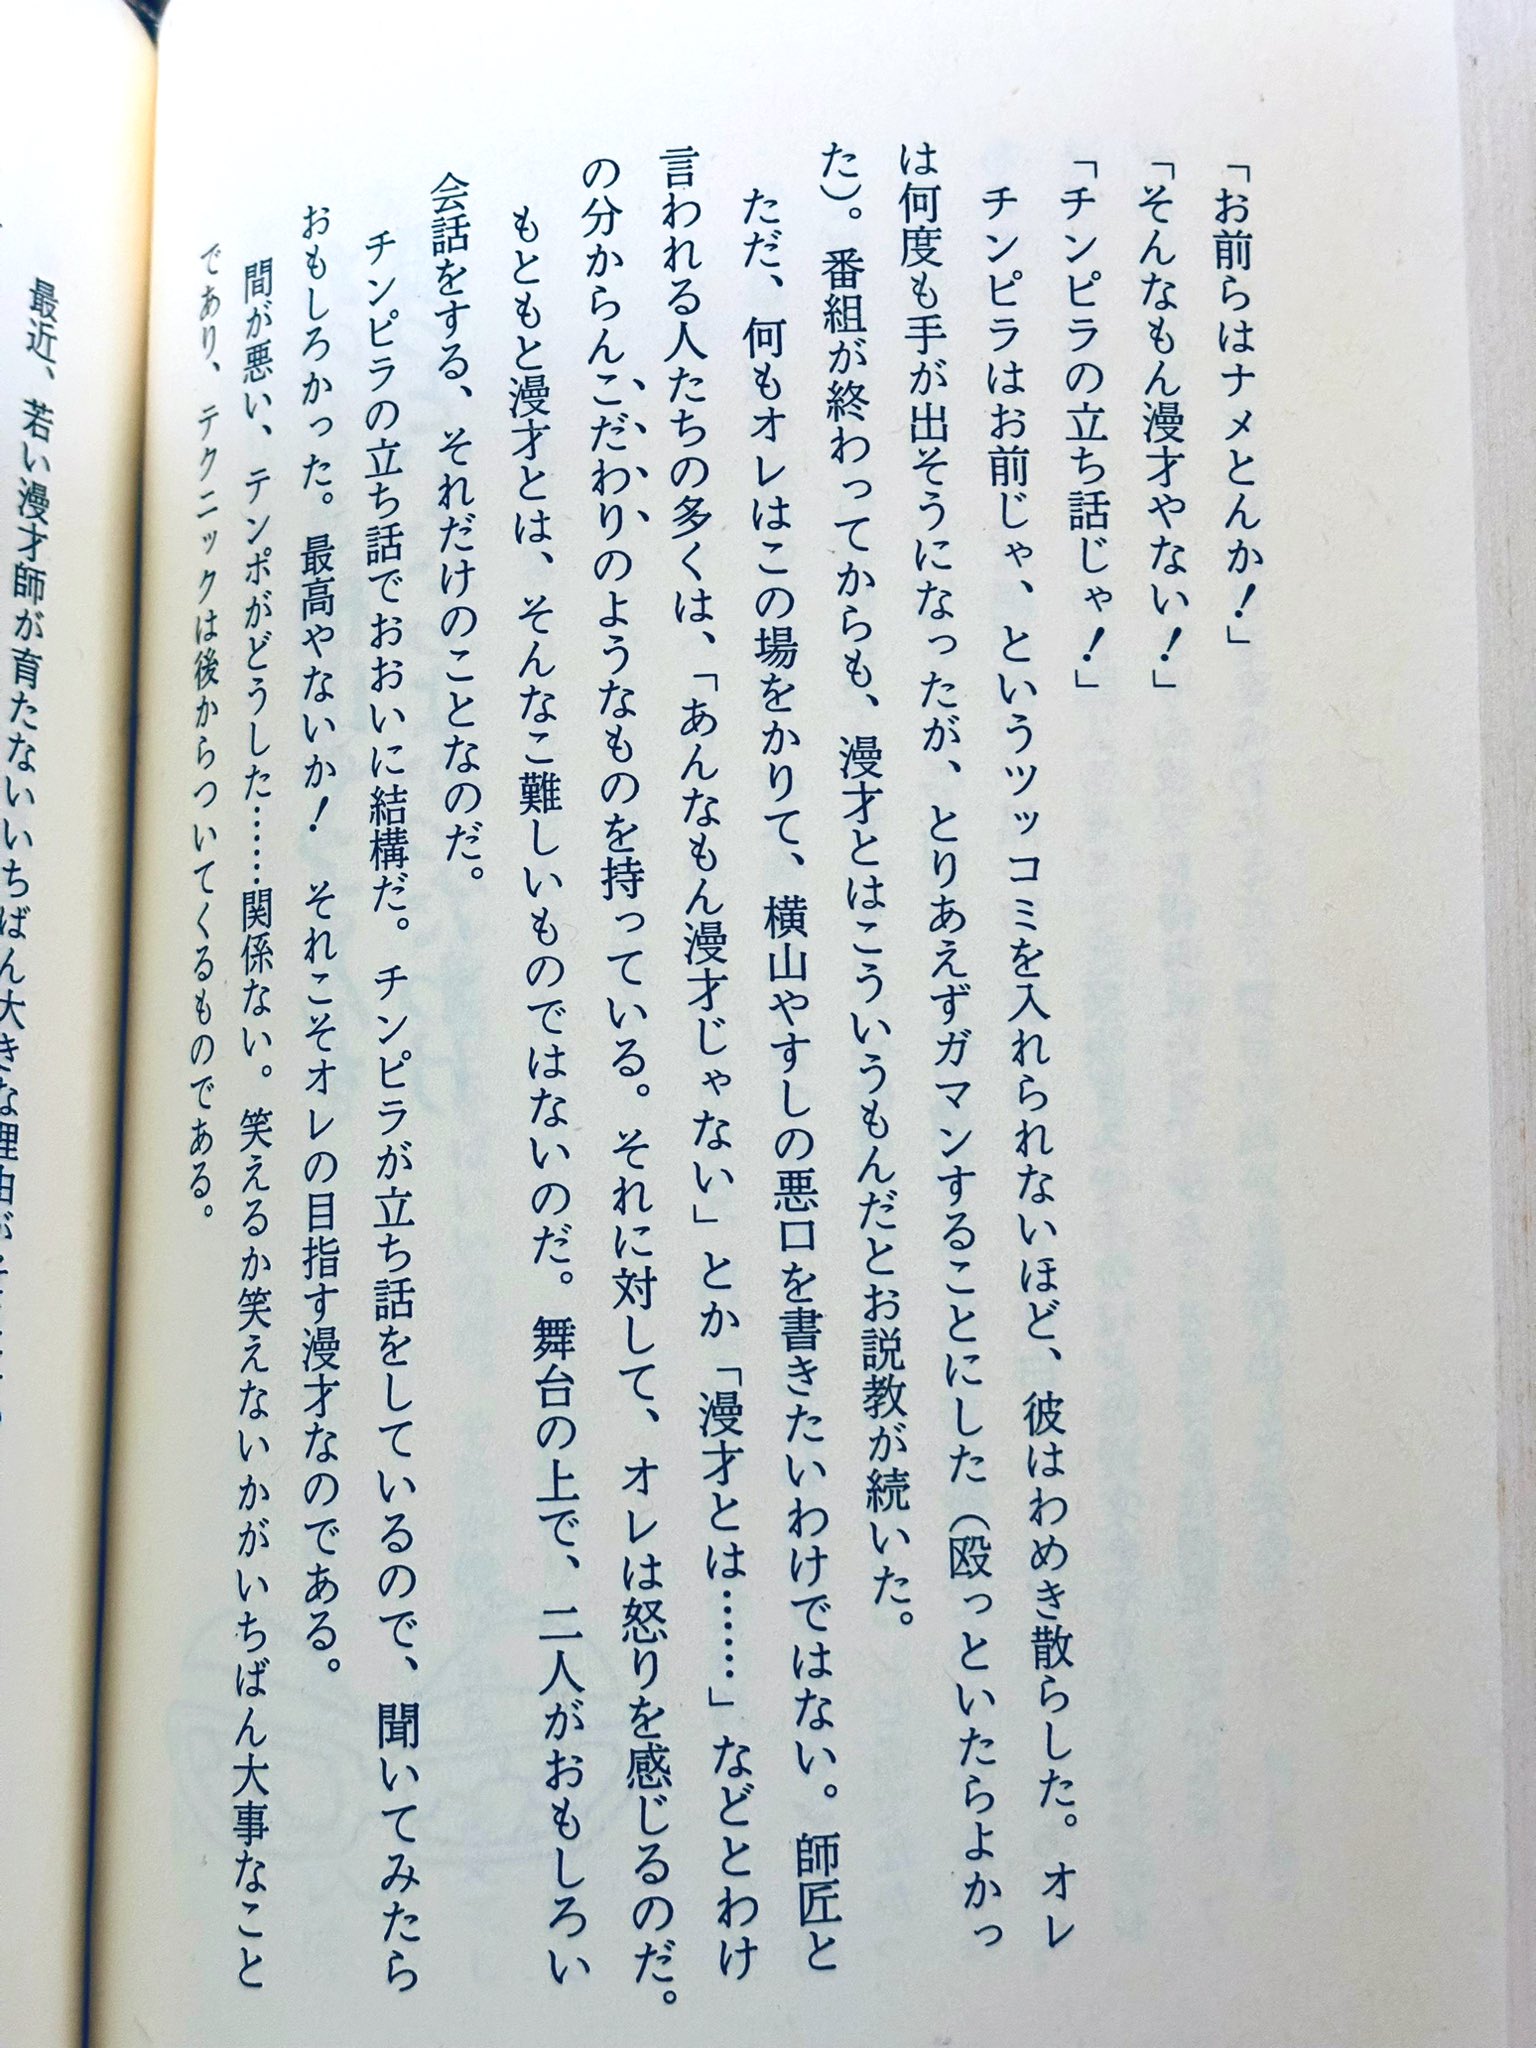 「お前らはナメとんか！」
「そんなもん漫才やない！」
「チンピラの立ち話じゃ！」
チンピラはお前じゃ、というツッコミを入れられないほど、彼はわめき散らした。オレ
は何度も手が出そうになったが、とりあえずガマンすることにした（殴っといたらよかっ
た）。番組が終わってからも、漫才とはこういうもんだとお説教が続いた。
ただ、何もオレはこの場をかりて、横山やすしの悪口を書きたいわけではない。師匠と
言われる人たちの多くは、「あんなもん漫才じゃない」とか「漫才とは……」などとわけ
の分からんこだわりのようなものを持っている。それに対して、オレは怒りを感じるのだ。
もともと漫才とは、そんなこ難しいものではないのだ。舞台の上で、二人がおもしろい
会話をする、それだけのことなのだ。
チンピラの立ち話でおおいに結構だ。チンピラが立ち話をしているので、聞いてみたら
おもしろかった。最高やないか！ それこそオレの目指す漫才なのである。
間が悪い、テンポがどうした……関係ない。笑えるか笑えないかがいちばん大事なこと
であり、テクニックは後からついてくるものである。
最近、若い漫才師が育たないいちばん大きな理由が